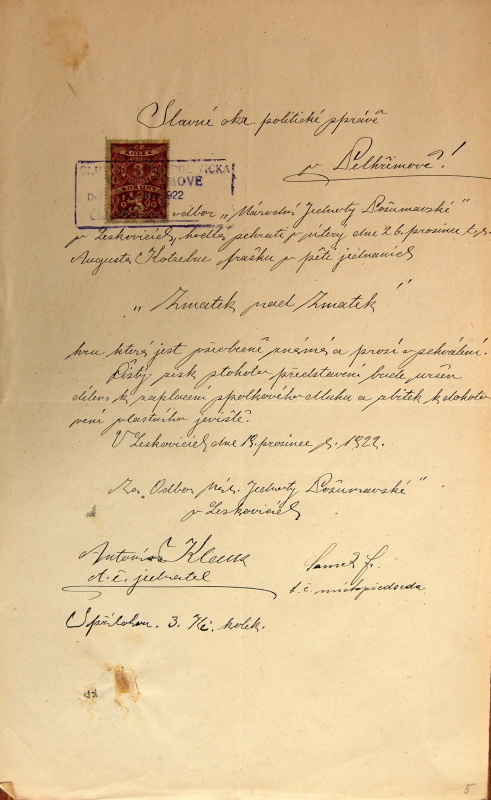 Slavné okr. politické správě
v Pelhřimově!
KOLEK
3
KORUNY
MOVĚ
1922
odbor „Národní Jednoty Pošumavské"
v Leskovicích, hodlá sehrati v úterý dne 26. prosince t.r.
Augusta Kotzebue frašku v pěti jednáních
„Zmatek nad Zmatek"
hru která jest všeobecně známá a prosí o schválení.
Čistý zisk z tohoto představení bude určen
dílem k zaplacení spolkového dluhu a zbytek k dohoto
vení vlastního jeviště.
V Leskovicích dne 19. prosince r. 1922.
Za „Odbor Nár. Jednoty Pošumavské"
v Leskovicích
Antonín Klenz
t. č. jednatel
t. č. místopředseda
S přílohou. 3. Kč. kolek.
5